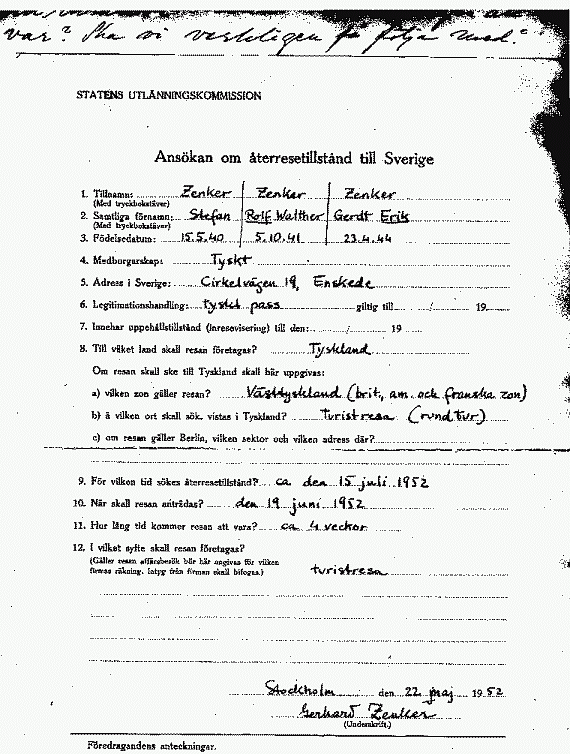 var? Ska vi verkligen få följa med?
STATENS UTLÄNNINGSKOMMISSION
Ansökan om återresetillstånd till Sverige
1. Tillnamn: Zenker Zenker Zenker
(Med tryckbokstäver)
2. Samtliga förnamn: Stefan Rolf Walther Gerdt Erik
(Med tryckbokstäver)
3. Födelsedatum: 15.5.40 5.10.41 23.4.44
4. Medborgarskap: Tyskt
5. Adress i Sverige: Cirkelvägen 19, Enskede
6. Legitimationshandling: tyskt pass giltig till / 19
7. Innehar uppehållstillstånd (inresevisering) till den: / 19
8. Till vilket land skall resan företagas? Tyskland
Om resan skall ske till Tyskland skall här uppgivas:
a) vilken zon gäller resan? Västtyskland (brit., am. och franska zon)
b) å vilken ort skall sök. vistas i Tyskland? Turistresa (rundtur)
c) om resan gäller Berlin, vilken sektor och vilken adress där?
9. För vilken tid sökes återresetillstånd? ca den 15 juli 1952
10. När skall resan anträdas? den 19 juni 1952
11. Hur lång tid kommer resan att vara? ca 4 veckor
12. I vilket syfte skall resan företagas?
(Gäller resan affärsbesök bör här angivas för vilken
firmas räkning. Intyg från firman skall bifogas.) turistresa
Stockholm den 22 maj 1952
Gerhard Zenker
(Underskrift.)
Föredragandens anteckningar.